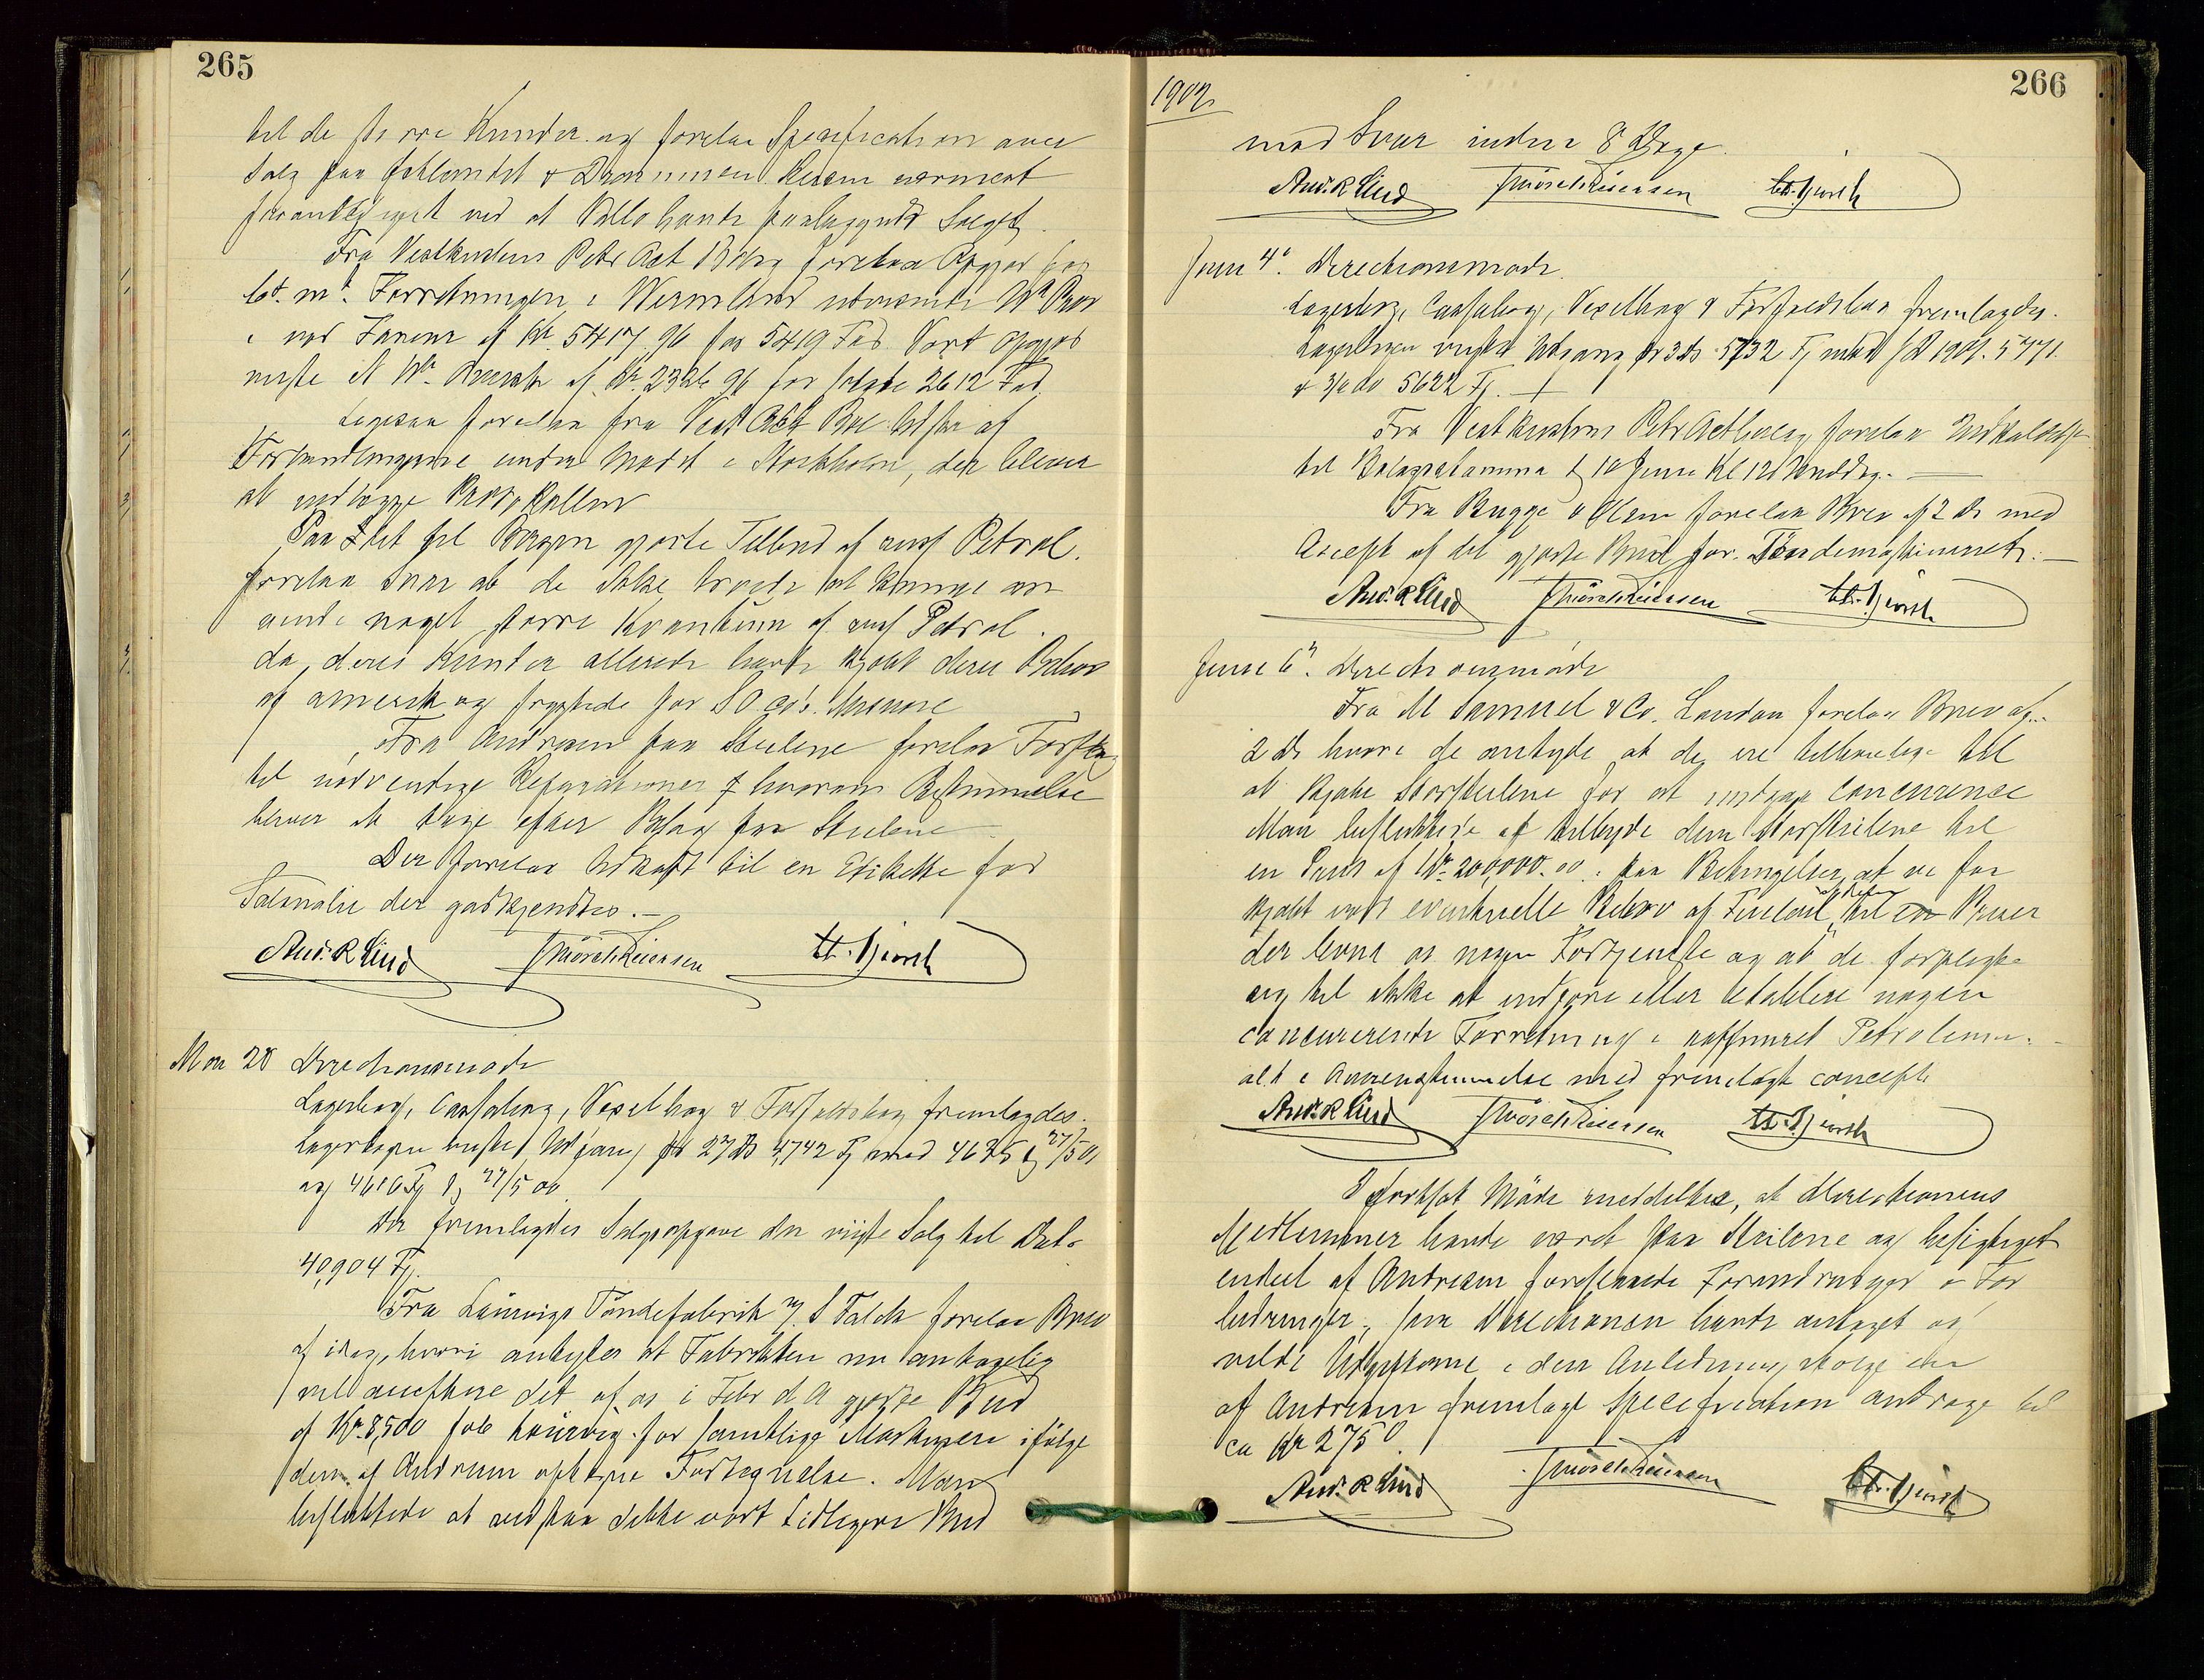 265
til de større Kunder og forelaa Specification over
Salg paa Østlandet & Drammen
foranlediget ved at Vallø havde paalagguds Salget.
Fra Vestkustens Petr Act Bolag forelaa Opgjør for
Forretningen i Wermland
ved Faveur af Kr. 5417.96 for 5419 Fad. Vort Opgjør
viste et Kr. 2326.96 for solgte 2612 Fad.
Ligesaa forelaa fra Vest Act Bol. Udskr af
Forhandlingerne under Mødet i Stockholm, der blever
at vedlægge Protokollen
Paa det til Bergen gjorte Tilbud af russ Petrol.
forelaa Svar at de ikke troede at kunne an
vende noget større Kvantum af russ Petrol.
da deres Kunder allerede havde kjøbt deres Behov
af amerik og frygtede for S O Co's
Fra Andresen paa Steilene forelaa Forslag
til nødvendige Reparationer hvorom Bestemmelse
bliver at tage efter Besøg paa Steilene
Der forelaa Udkast til en Etikette for
Solarolie der godkjendtes.—
And. R Lind J Mörch Reiersen Chr. Hjorth
Mai 28 Directionsmøde
Lagerbog, Cassabog, Vexelbog & Forfaldsbog fremlagdes.
Lagerbogen viste Udgang pr 27 ds 4,742 Fj mod 4625 27/5 01
og 4616 Fj 27/5 00
Der fremlagdes Salgsopgave der viiste Salg til Dato
40,904 Fj.
Fra Laurvigs Tøndefabrik v/ S Falck forelaa Brev
af idag, hvori antydes at Fabrikken nu antagelig
vil acceptere det af os i Febr d.A gjorte Bud
af Kr. 8,500 fob Laurvig for samtlige Maskinere ifølge
den af Andresen optagne Fortegnelse. Man
besluttede at vedstaa dette vort tidligere Bud
1902
266
mod Svar inden 8 Dage.
And. R Lind J Mörch Reiersen Chr. Hjorth
Juni 4de. Directionsmøde.
Lagerbog, Cassabog, Vexelbog & Forfaldsbog fremlagdes.
Lagerbogen viste Udgang pr 3 ds 5132 Fj mod 3/6 1901. 5771.
& 3/6 00 5622 Fj.
Fra Vestkustens Petr Act bolag forelaa Indkaldelse
til Bolagsstämma d 10 Juni Kl 12 Middag.—
Fra Bugge & Olsen forelaa Brev af 2 ds med
Accept af det gjorte Bud for Tøndemaskineriet.—
And. R Lind J Mörch Reiersen Chr. Hjorth
Juni 6te. Directionsmøde
Fra M Samuel & Co. London forelaa Brev af
2 ds hvori de antyde at de ere tilbøielige til
at kjøbe Storsteilene for at undgaa Concurrense
Man besluttede at tilbyde dem Storsteilene til
en Priis af Kr. 200,000.00. paa Betingelser, at vi faa
kjøbt vort eventuelle Behov af Fueloil, til en Priser
der levne os nogen Fortjeneste og at de forpligte
sig til ikke at indføre eller etablere nogen
concurerende Forretning i raffineret Petroleum.
alt i Overensstemmelse med fremlagt concept
And. R Lind J Mörch Reiersen Chr. Hjorth
I fortsat Møde meddeltes, at Directionens
Medlemmer havde været paa Steilene og besigtiget
endeel af Andresen foreslaaede Forandringer & For
bedringer, som Directionen havde antaget og
vilde Udgifterne i den Anledning ifølge en
af Andresen fremlagt Specification andrage til
ca Kr 2750.
And. R Lind J Mörch Reiersen Chr. Hjorth